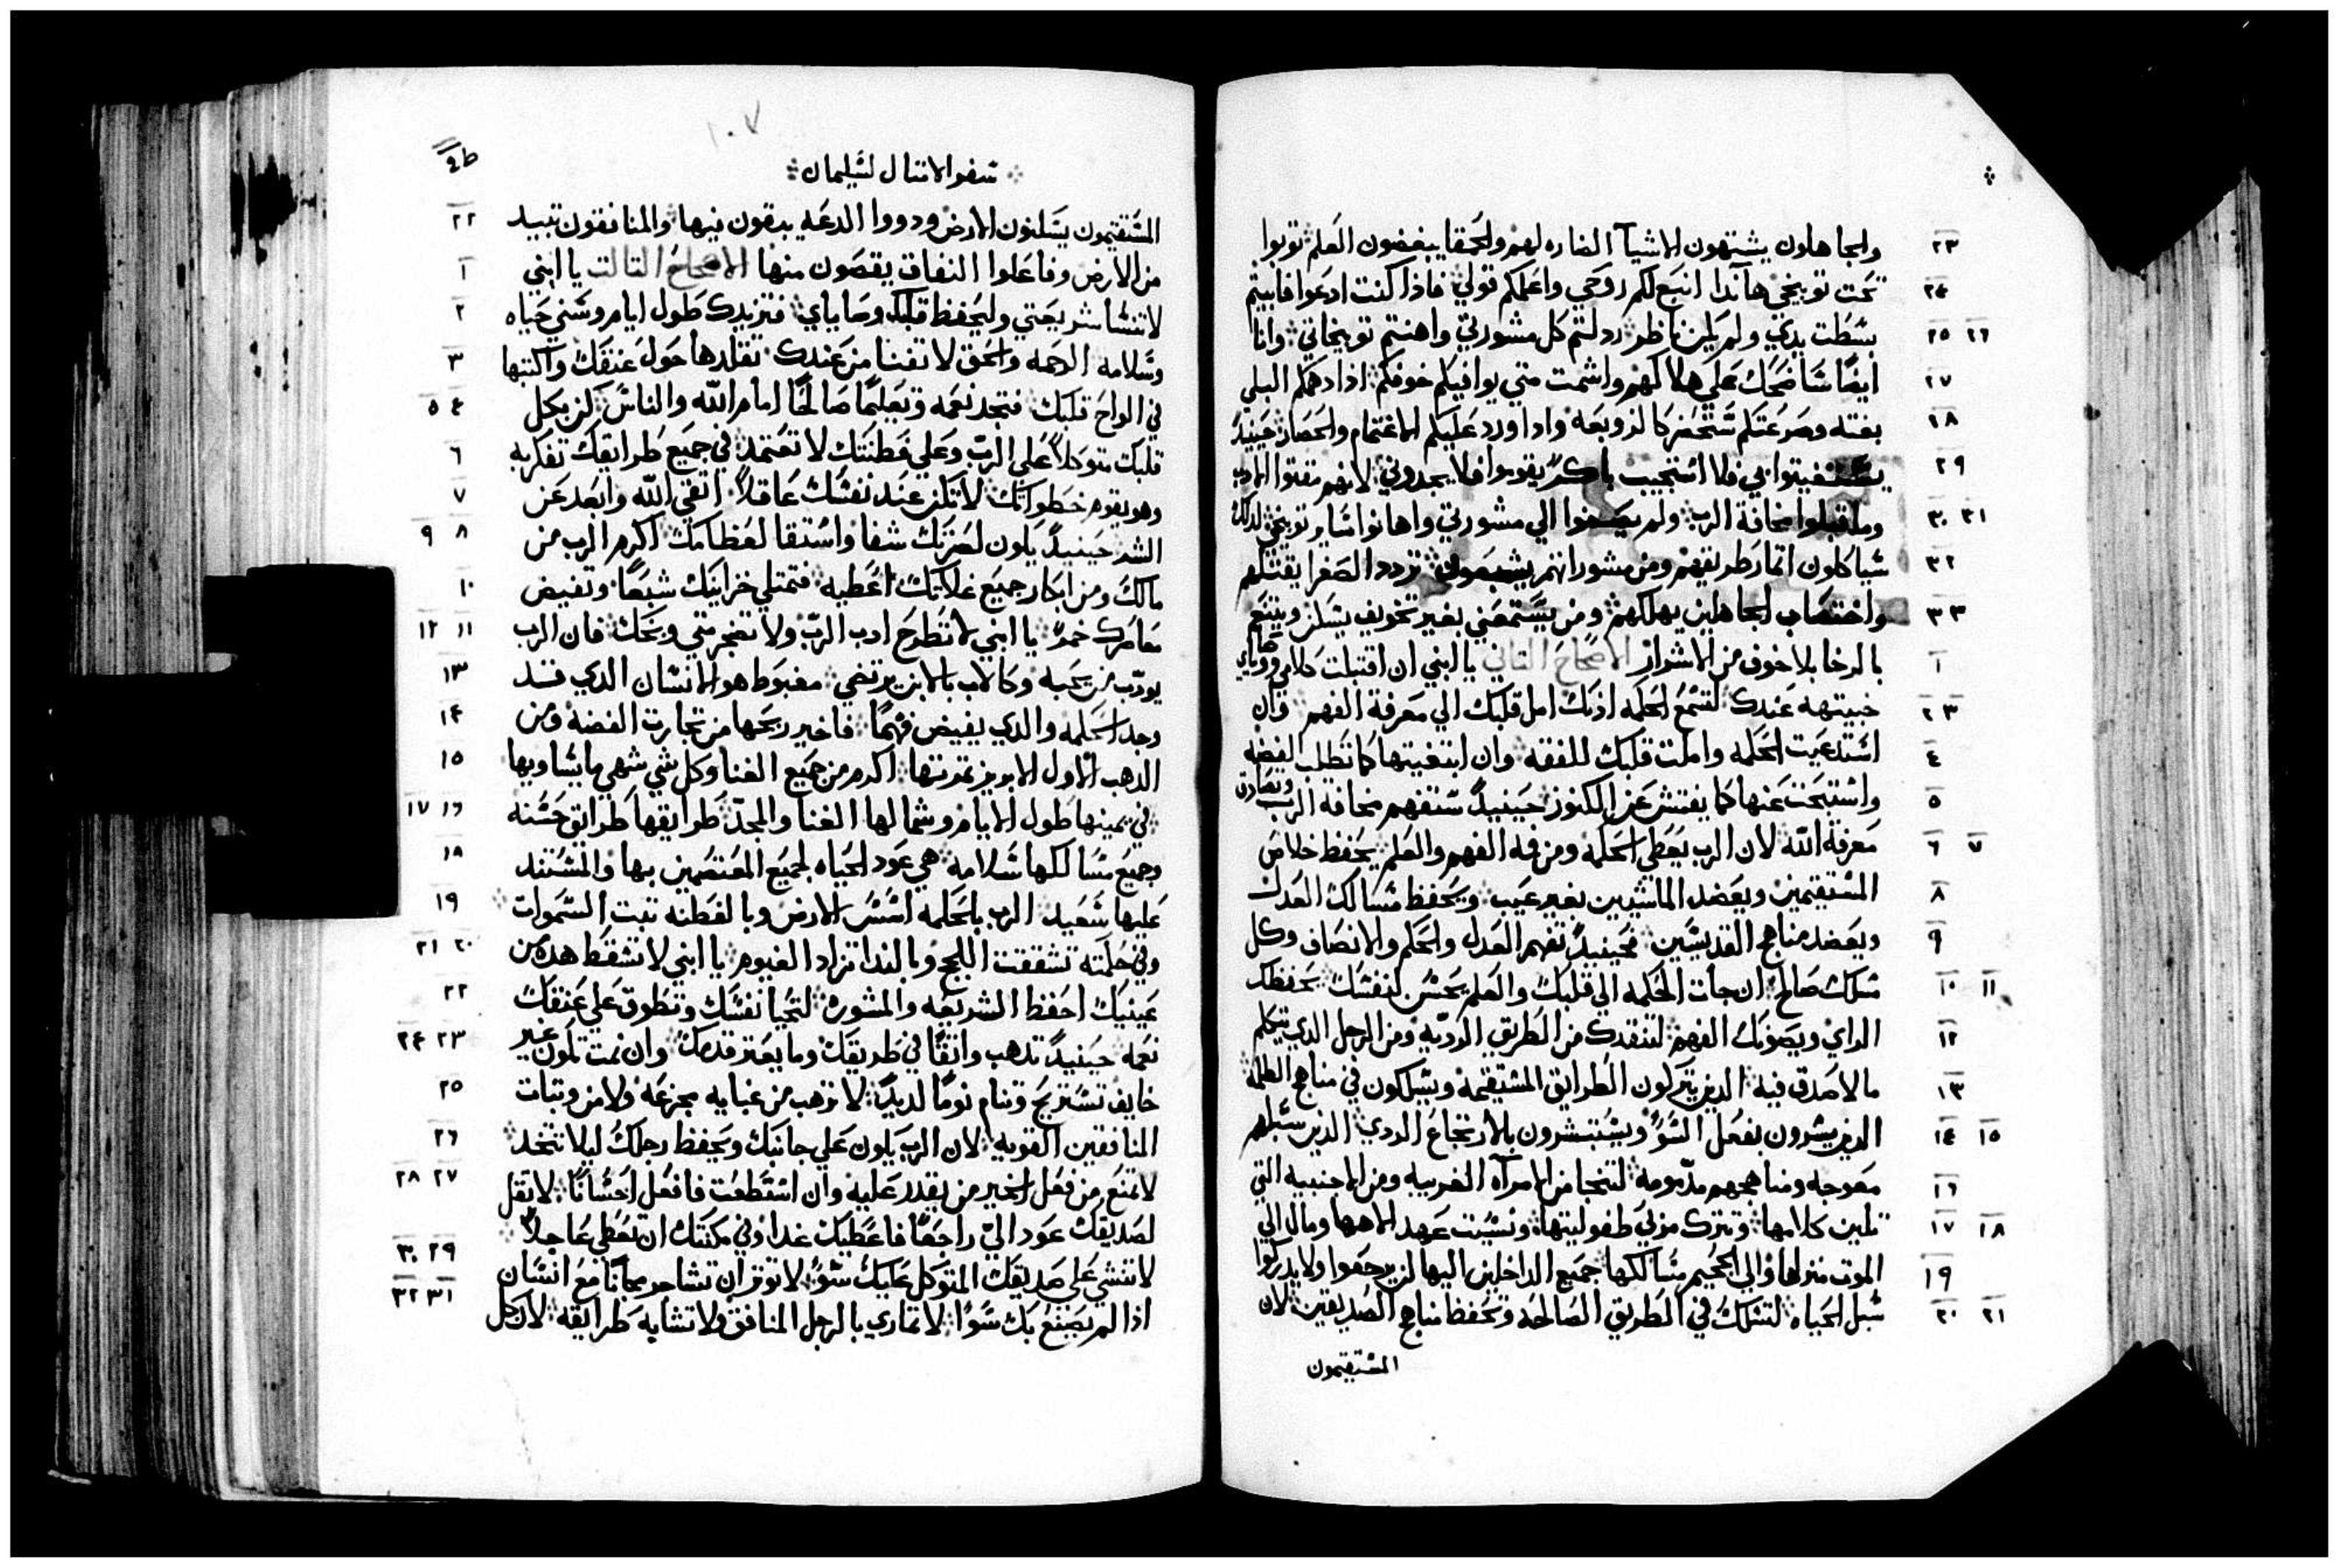 ٢٣ والجاهلون يشتهون الاشيآ الضاره لهم والحمقا يبغضون العلم توبوا
٢٤ تحت توبيخي هآندا انبع لكم روحي واعلمكم قولي فاذا كنت ادعوا فابيتم
٢٥ ٢٦ بسطت يدي ولم يكن ناظر ردلتم كل مشورتي واهنتم توبيخاتي وانا
٢٧ ايضًا ساضحك علي هلاككم واشمت متي يوافيكم خوفكم اذا دهمكم البلي
٢٨ بغته وصرعتكم ستحضر كالزوبعه واذا ورد عليكم الاغتمام والحصار حينيدٍ
٢٩ يستغيتوا بي فلا استجيب باكرً يقوموا فلا يجدوني لانهم مقتوا الادب
٣٠ ٣١ وما قبلوا مخافة الرب ولم يصغوا الي مشورتي واهانوا ساير توبيخي لدلك
٣٢ سياكلون اتمار طريقهم ومن مشوراتهم يشبعون تردد الصغرا يقتلهم
٣٣ واختصاب الجاهلين يهلكهم ومن يستمعني بغير تخويف يسكن ويتنع
١ بالرخا بلا خوف من الاشرار الاصحاح التاني يا ابني ان اقتبلت كلامي ووصاياي
٢ ٣ خبيتهه عندك لتسمع الحكمه ادنك امل قلبك الي معرفة الفهم وان
٤ استدعيت الحكمه واملت قلبك للفقه وان ابتغيتها كما تطلب الفضه
٥ واستبحتت عنها كما يفتش عن الكنوز حينيدٍ ستفهم مخافة الرب وتصادف
٦ ٧ معرفة الله لان الرب يعطي الحكمه ومن فه الفهم والعلم يحفظ خلاص
٨ المستقيمين ويعضد الماشيين بغير عيب ويحفظ مسالك العدل
٩ ويعضد مناهج القديسين فحينيدٍ تفهم العدل والحكم والانصاف وكل
١٠ ١١ مسلك صالح ان جات الحكمه الي قلبك والعلم يحسن لنفسك يحفظك
١٢ الراي ويصونك الفهم لتنقدك من الطريق الرديه ومن الرجل الدي يتكلم
١٣ ما لا صدق فيه الدين يتركون الطرايق المستقيمه ويسلكون في مناهج الظلمه
١٤ ١٥ الدين يسرون بفعل السوً ويستبشرون بالارتجاع الردي الدين سبلهم
١٦ معوجه ومناهجهم مدمومه لتنجا من الامرآه الغريبه ومن الاجنبيه التي
١٧ ١٨ تلين كلامها وتترك مربي طفوليتها ونسيت عهد الاهها ومال الي
١٩ الموت منزلها والي الجحيم مسالكها جميع الداخلين اليها لن يرجعوا ولا يدركوا
٢٠ ٢١ سبل الحياه لتسلك في الطريق الصالحه وتحفظ مناهج الصديقين لان
المستقيمون
١٠٧
سفر الامتال لسليمان
٢٢ المستقيمون يسكنون الارض ودووا الدعه يبقون فيها والمنافقون تبيد
١ من الارض وفاعلوا النفاق يقصون منها الاصحاح التالت يا ابني
٢ لا تنسا شريعتي وليحفظ قلبك وصاياي فتزيدك طول ايام وسني حياه
٣ وسلامه الرحمه والحق لا تفنا من عندك تقلدها حول عنقك واكتبها
٤ ٥ في الواح قلبك فتجد نعمه وتعليمًا صالحًا امام الله والناس كن بكل
٦ قلبك متوكلاً علي الرب وعلي فطنتك لا تعتمد في جميع طرايقك تفكر به
٧ وهو يقوم خطواتك لا تكن عند نفسك عاقلاً اتقي الله وابعد عن
٨ ٩ الشر حينيدٍ يكون لصرتك شفا واستقا لعظامك اكرم الرب من
١٠ مالك ومن ابكار جميع غلاتك اعطيه فتمتلي خزاينك شبعًا وتفيض
١١ ١٢ معاصرك خمرً يا ابني لا تطرح ادب الرب ولا تضجر متي وبخك فان الرب
١٣ يودب من يحبه وكالاب بالابن يرتضي مغبوط هو الانسان الدي قد
١٤ وجد الحكمه والدي يفيض فهمًا فاخير ربحها من تجارت الفضه ومن
١٥ الدهب الاول الابريز تمرتها اكرم من جميع الغنا وكل شي شهي ما يساويها
١٦ ١٧ في يمينها طول الايام وشمالها الغنا والمجد طرايقها طرايق حسنه
١٨ وجميع مسالكها سلامه هي عود الحياه لجميع المعتصمين بها والمستند
١٩ عليها سعيد الرب بالحكمه اسس الارض وبالفطنه تبت السموات
٢٠ ٢١ وفي حكمته تشققت اللجج وبالندا تزاد الغيوم يا ابني لا تسقط هده من
٢٢ عينيك احفظ الشريعه والمشوره لتحيا نفسك وتطوق علي عنقك
٢٣ ٢٤ نعمه حينيدٍ تدهب واتقًا في طريقك وما يعتر قدمك وان نمت تكون غير
٢٥ خايف تستريح وتنام نومًا لديدً لا ترهب من غبايه مجزعه ولا من وتبات
٢٦ المنافقين القويه لان الرب يكون علي جانبك ويحفظ رجلك ليلا تتخد
٢٧ ٢٨ لا تمنع من فعل الخير من يقدر عليه وان استطعت فافعل احسانًا لا تقل
لصديقك عود الي راجعًا فاعطيك غدا وفي مكنتك ان تعطي عاجلاً
٢٩ ٣٠ لا تنشي علي صديقك المتوكل عليك سوًا لا توتر ان تشاجر مجانًا مع انسان
٣١ ٣٢ ادا لم يصنع بك سوًا لا تماري بالرجل المنافق ولا تشابه طرايقه لان كل